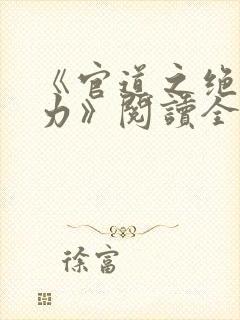 《官道之绝
力》閱讀全
徐富